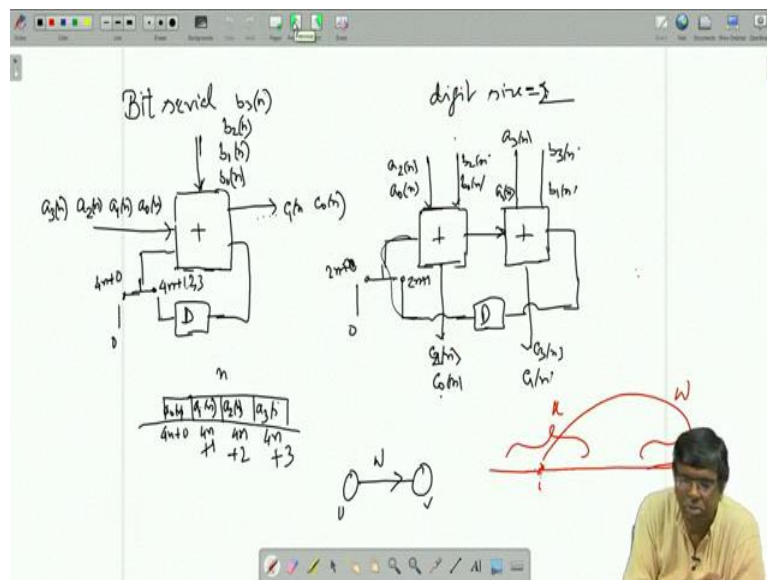 Bit serial
b3(n)
b2(n)
b1(n)
b0(n)
a3(n) a2(n) a1(n) a0(n)
+
... c1(n) c0(n)
4n+0
4n+1,2,3
0
D
n
a0(n) a1(n) a2(n) a3(n)
4n+0 4n+1 4n+2 4n+3
digit size=2
a2(n)
a0(n)
b2(n)
b0(n)
a3(n)
a1(n)
b3(n)
b1(n)
+ +
2n+0
2n+1
0
D
c2(n)
c0(n)
c3(n)
c1(n)
W
U V
W
i
AI